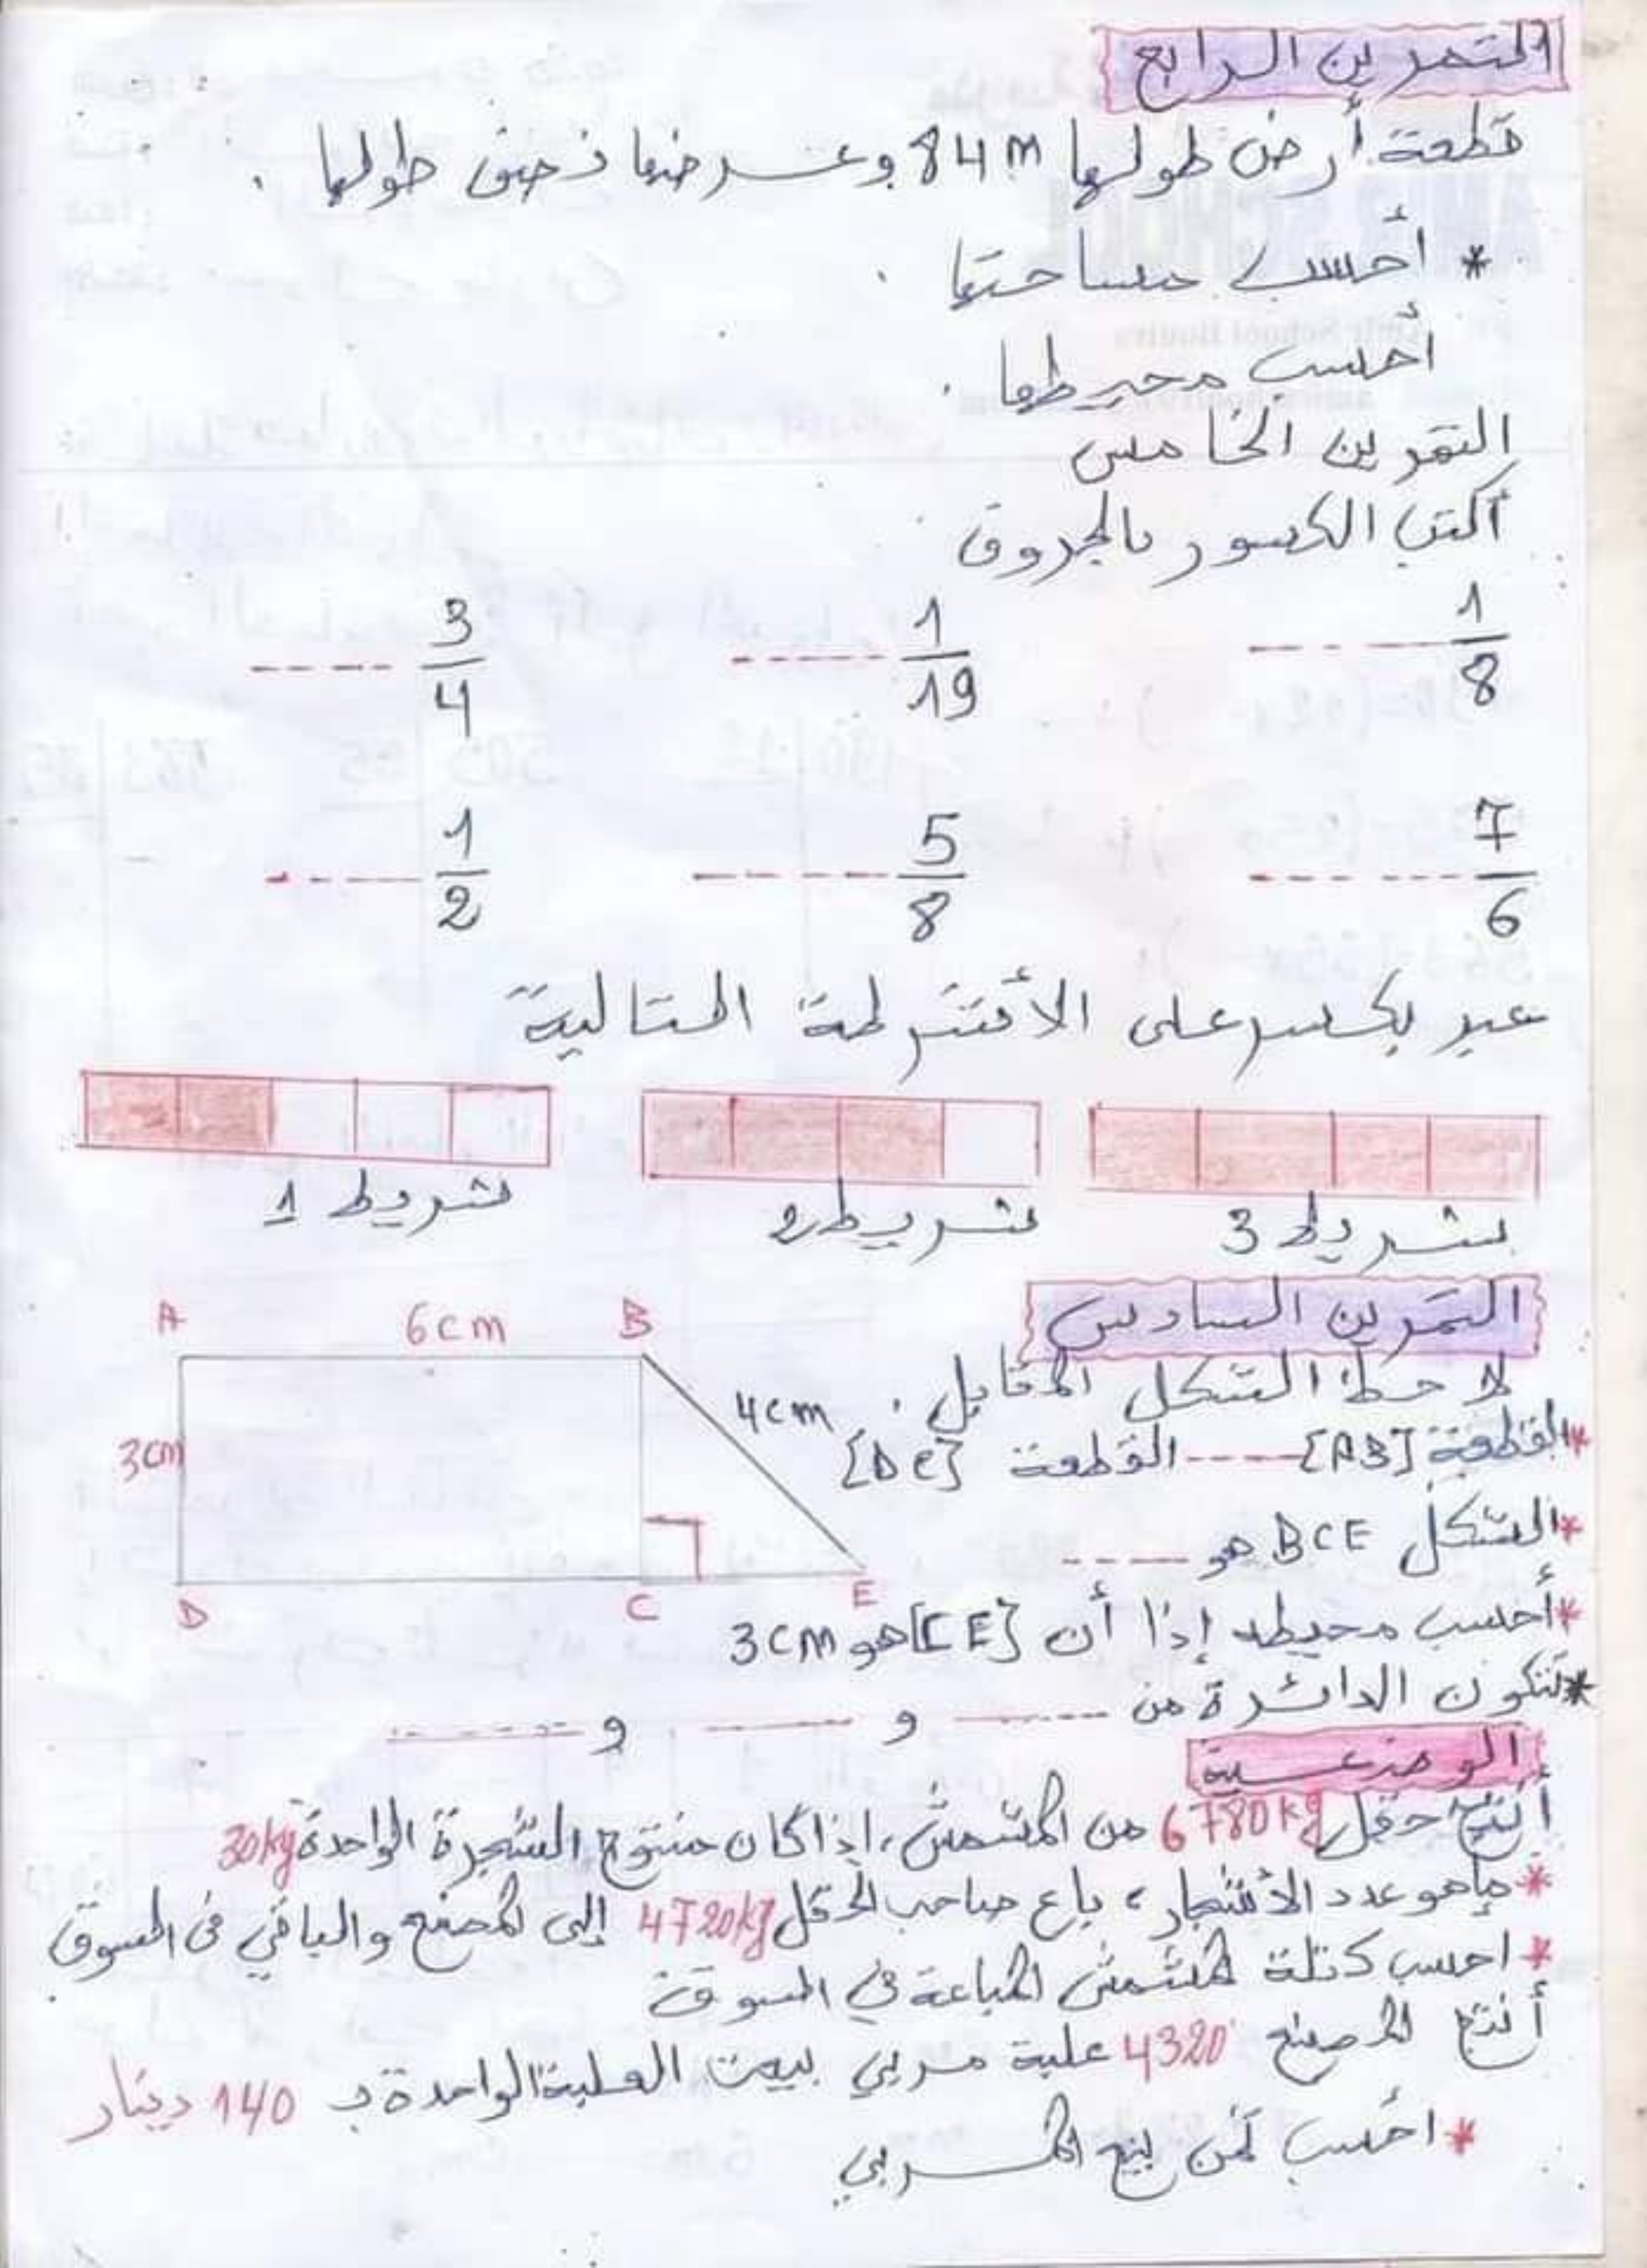 التمرين الرابع
قطعة أرض طولها 84m وعرضها نصف طولها .
* أحسب مساحتها .
أحسب محيطها .
التمرين الخامس
أكتب الكسور بالحروف
1/8 ---- 1/19 ---- 3/4 ----
7/6 ---- 5/8 ---- 1/2 ----
عبر بكسر على الأشرطة التالية
شريط 3 شريط 2 شريط 1
التمرين السادس
لاحظ الشكل المقابل .
* القطعة [AB] ---- القطعة [DC]
* الشكل BCE هو ----
* أحسب محيطه إذا أن [CE] هو 3cm
* تتكون الدائرة من ---- و ---- و ----
A 6cm B
4cm
3cm
D C E
الوضعية
أنتج حقل 6780kg من المشمش، إذا كان منتوج الشجرة الواحدة 30kg
* ماهو عدد الأشجار، باع صاحب الحقل 4720kg إلى المصنع والباقي في السوق .
* احسب كتلة المشمش المباعة في السوق
أنتج المصنع 4320 علبة مربي بيعت العلبة الواحدة بـ 140 دينار
* احسب ثمن بيع المربي